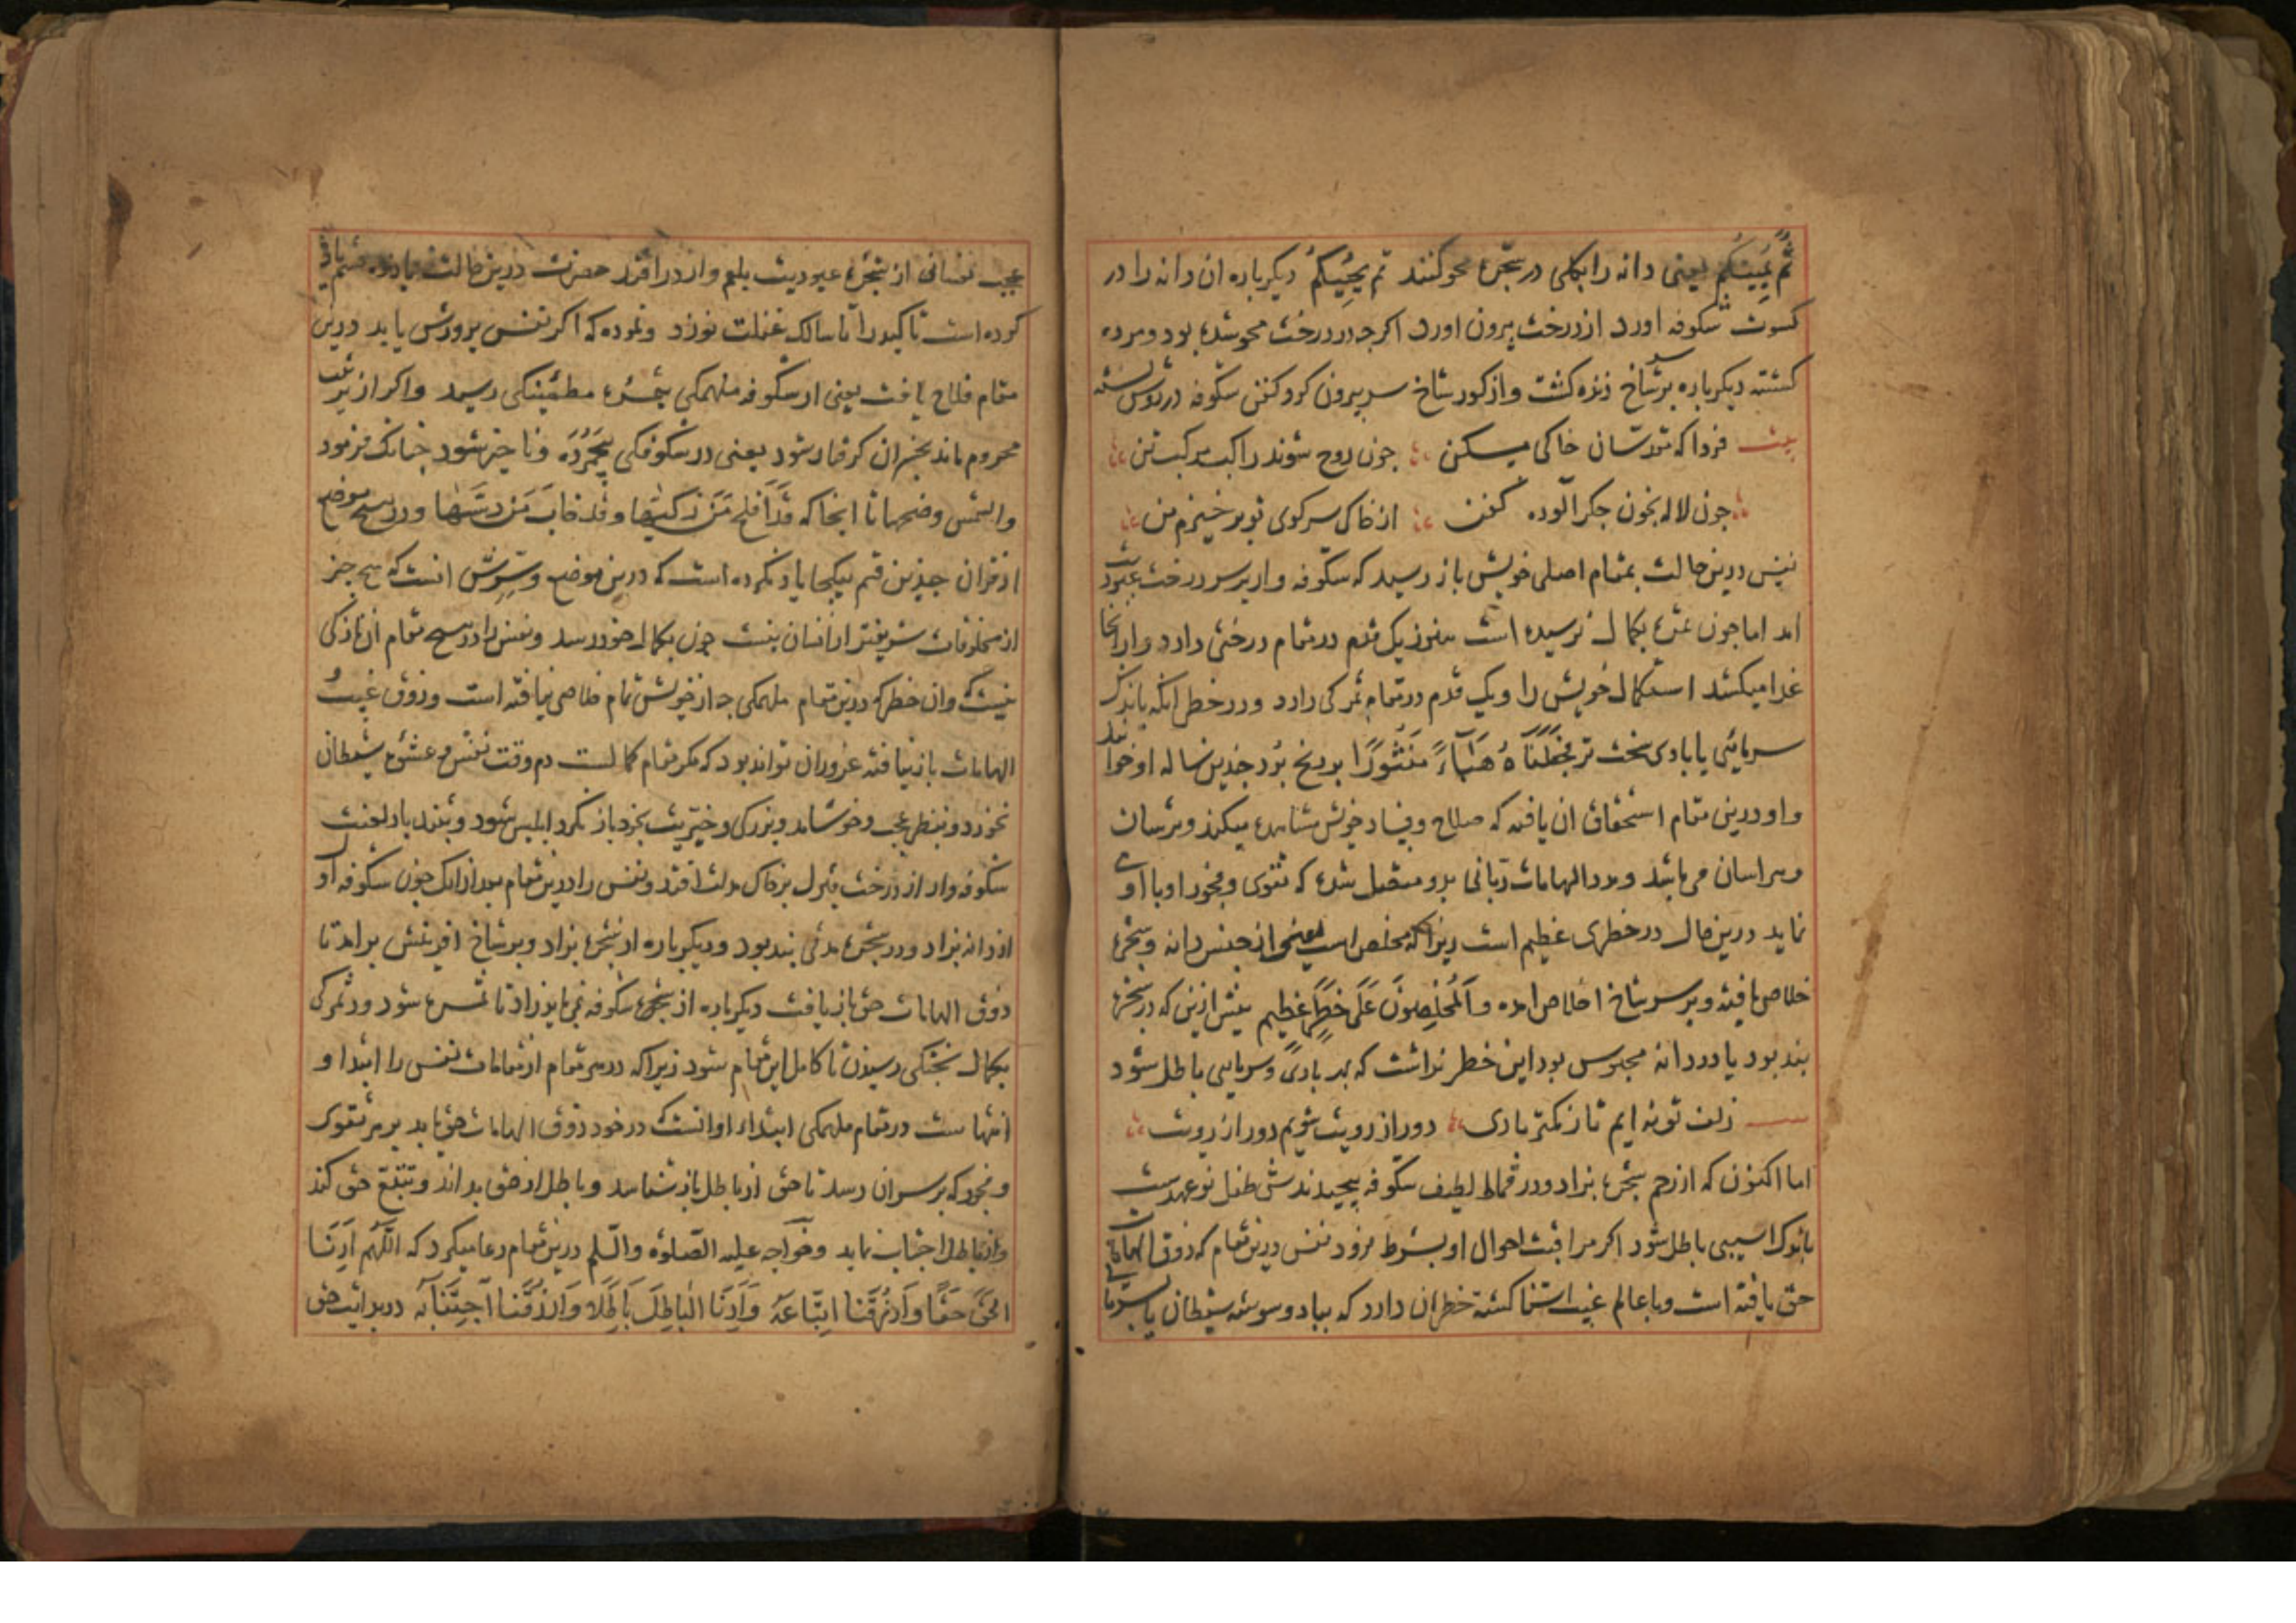 ثُمَّ يُمِيتُكُم يعنى دانه را بكلى در شجرهٔ محو كنند ثم يُحْيِيكُمْ ديكرباره ان دانه را در
كسوت شكوفه اورد از درخت بيرون اورد اكرجه در درخت محو شدهٔ بود و مرده
كشته ديكرباره بر سر شاخ زنده كشت و از كور شاخ سر بيرون كرد كفن شكوفه در دوش
بيت فردا كه مقدسان خاكى مسكن جون روح شوند راكب مركب تن
جون لاله بخون جكر الوده كفن از خاك سر كوى تو بر خيزم من
نفس درين حالت بمقام اصلى خويش باز رسيد كه شكوفه وار بر سر درخت عبوديت
امد اما جون ثمرهٔ بكمال نرسيده است هنوز يك قدم در مقام درختى دارد و از انجا
غذا ميكشد استكمال خويش را و يك قدم در مقام ثمركى دارد و در خطر انكه باندك
سرمائى يا بادى سخت تر فَجَعَلْنَاهُ هَبَآءً مَنْثُورًا بود رنج بُرد جندين ساله او خواند
و او درين مقام استحقاق ان يافته كه صلاح و فساد خويش مشاهدهٔ ميكند و ترسان
و هراسان مى باشد و مدد الهامات ربانى بدو متصل شدهٔ كه تقوى و فجور او با او
نمايد درين حال در خطرى عظيم است زيرا كه مخلص است يعنى از جنس دانه و شجرهٔ
خلاص يافته و بر سر شاخ اخلاص امده وَالْمُخْلِصُونَ عَلَى خَطَرٍ عَظِيم پيش ازين كه در شجرهٔ
بند بود يا در دانه محبوس بود اين خطر نداشت كه بهر بادى و سرمايى باطل شود
زلف تو نه ايم تا ز كمتر بادى دور از رويت شويم دور از رويت
اما اكنون كه از رحم شجرهٔ بزاد و در قماط لطيف شكوفه پيچيدندش طفل نو عهدست
باندك اسيبى باطل شود اكر مراقبت احوال او بشرط نرود نفس درين مقام كه ذوق الهامات
حق يافته است و با عالم غيب اشنا كشته خطر ان دارد كه بباد وسوسه شيطان يا بسرما
عجب نفسانى از شجرهٔ عبوديت بلعم وار در افتد حضرت درين حالت يازده قسم ياد
كرده است تاكيد را تا سالك غفلت نورزد و نموده كه اكر نفس پرورش يابد درين
مقام فلاح يافت يعنى از شكوفه ملهمكى بثمرهٔ مطمئنكى رسيد و اكر از تربيت
محروم ماند بخسران كرفتار شود يعنى در شكوفكى پژمرده و ناجيز شود جنانك فرمود
والشمس وضحيها تا انجا كه قَدْ اَفْلَحَ مَنْ زَكّٰيهَا وقَدْ خَابَ مَنْ دَسّٰيهَا و در هيج موضع
از قران جندين قسم بيكجا ياد نكرده است كه درين موضع و سِرّش انست كه هيج جيز
از مخلوقات شريفتر از انسان نيست جون بكمال خود رسد و نفس را در هيج مقام ان نازكى
نيست و ان خطر كه درين مقام ملهمكى جه از خويش تمام خلاصى نيافته است و ذوق غيب و
الهامات باز نيافته غرور ان تواند بود كه مكر مقام كمالست دم وقت نفس و عشوهٔ شيطان
نخورد و بنظر عجب و خوشامد و بزركى و خيريت بخود باز نكرد ابليس شود و بتندباد لعنت
شكوفه وار از درخت قبول بر خاك مذلت افتد و نفس را درين مقام بعد از انك جون شكوفه اول
از دانه بزاد و در شجرهٔ مدتى بند بود و ديكرباره از شجرهٔ بزاد و بر شاخ افرينش برامد تا
ذوق الهامات حق باز يافت ديكرباره از شجرهٔ شكوفه مى بايد زاد تا ثمرهٔ شود و در ثمركى
بكمال پختكى رسيدن تا كامل اين مقام شود زيرا كه در هر مقام از مقامات نفس را ابتدا و
انتهاست در مقام ملهمكى ابتداء او انست كه در خود ذوق الهامات حق يابد بر هر تقوى
و فجور كه بر سر ان رسد تا حق از باطل باز شناسد و باطل از حق بداند و تتبّع حق كند
و از باطل اجتناب نمايد و خواجه عليه الصلوة والسلم درين مقام دعا ميكرد كه اَللّٰهُمَّ اَرِنَا
الحَقَّ حَقًّا وَارْزُقْنَا اتِّبَاعَهُ وَاَرِنَا الْبَاطِلَ بَاطِلًا وَارْزُقْنَا اجْتِنَابَه در بدايت حق